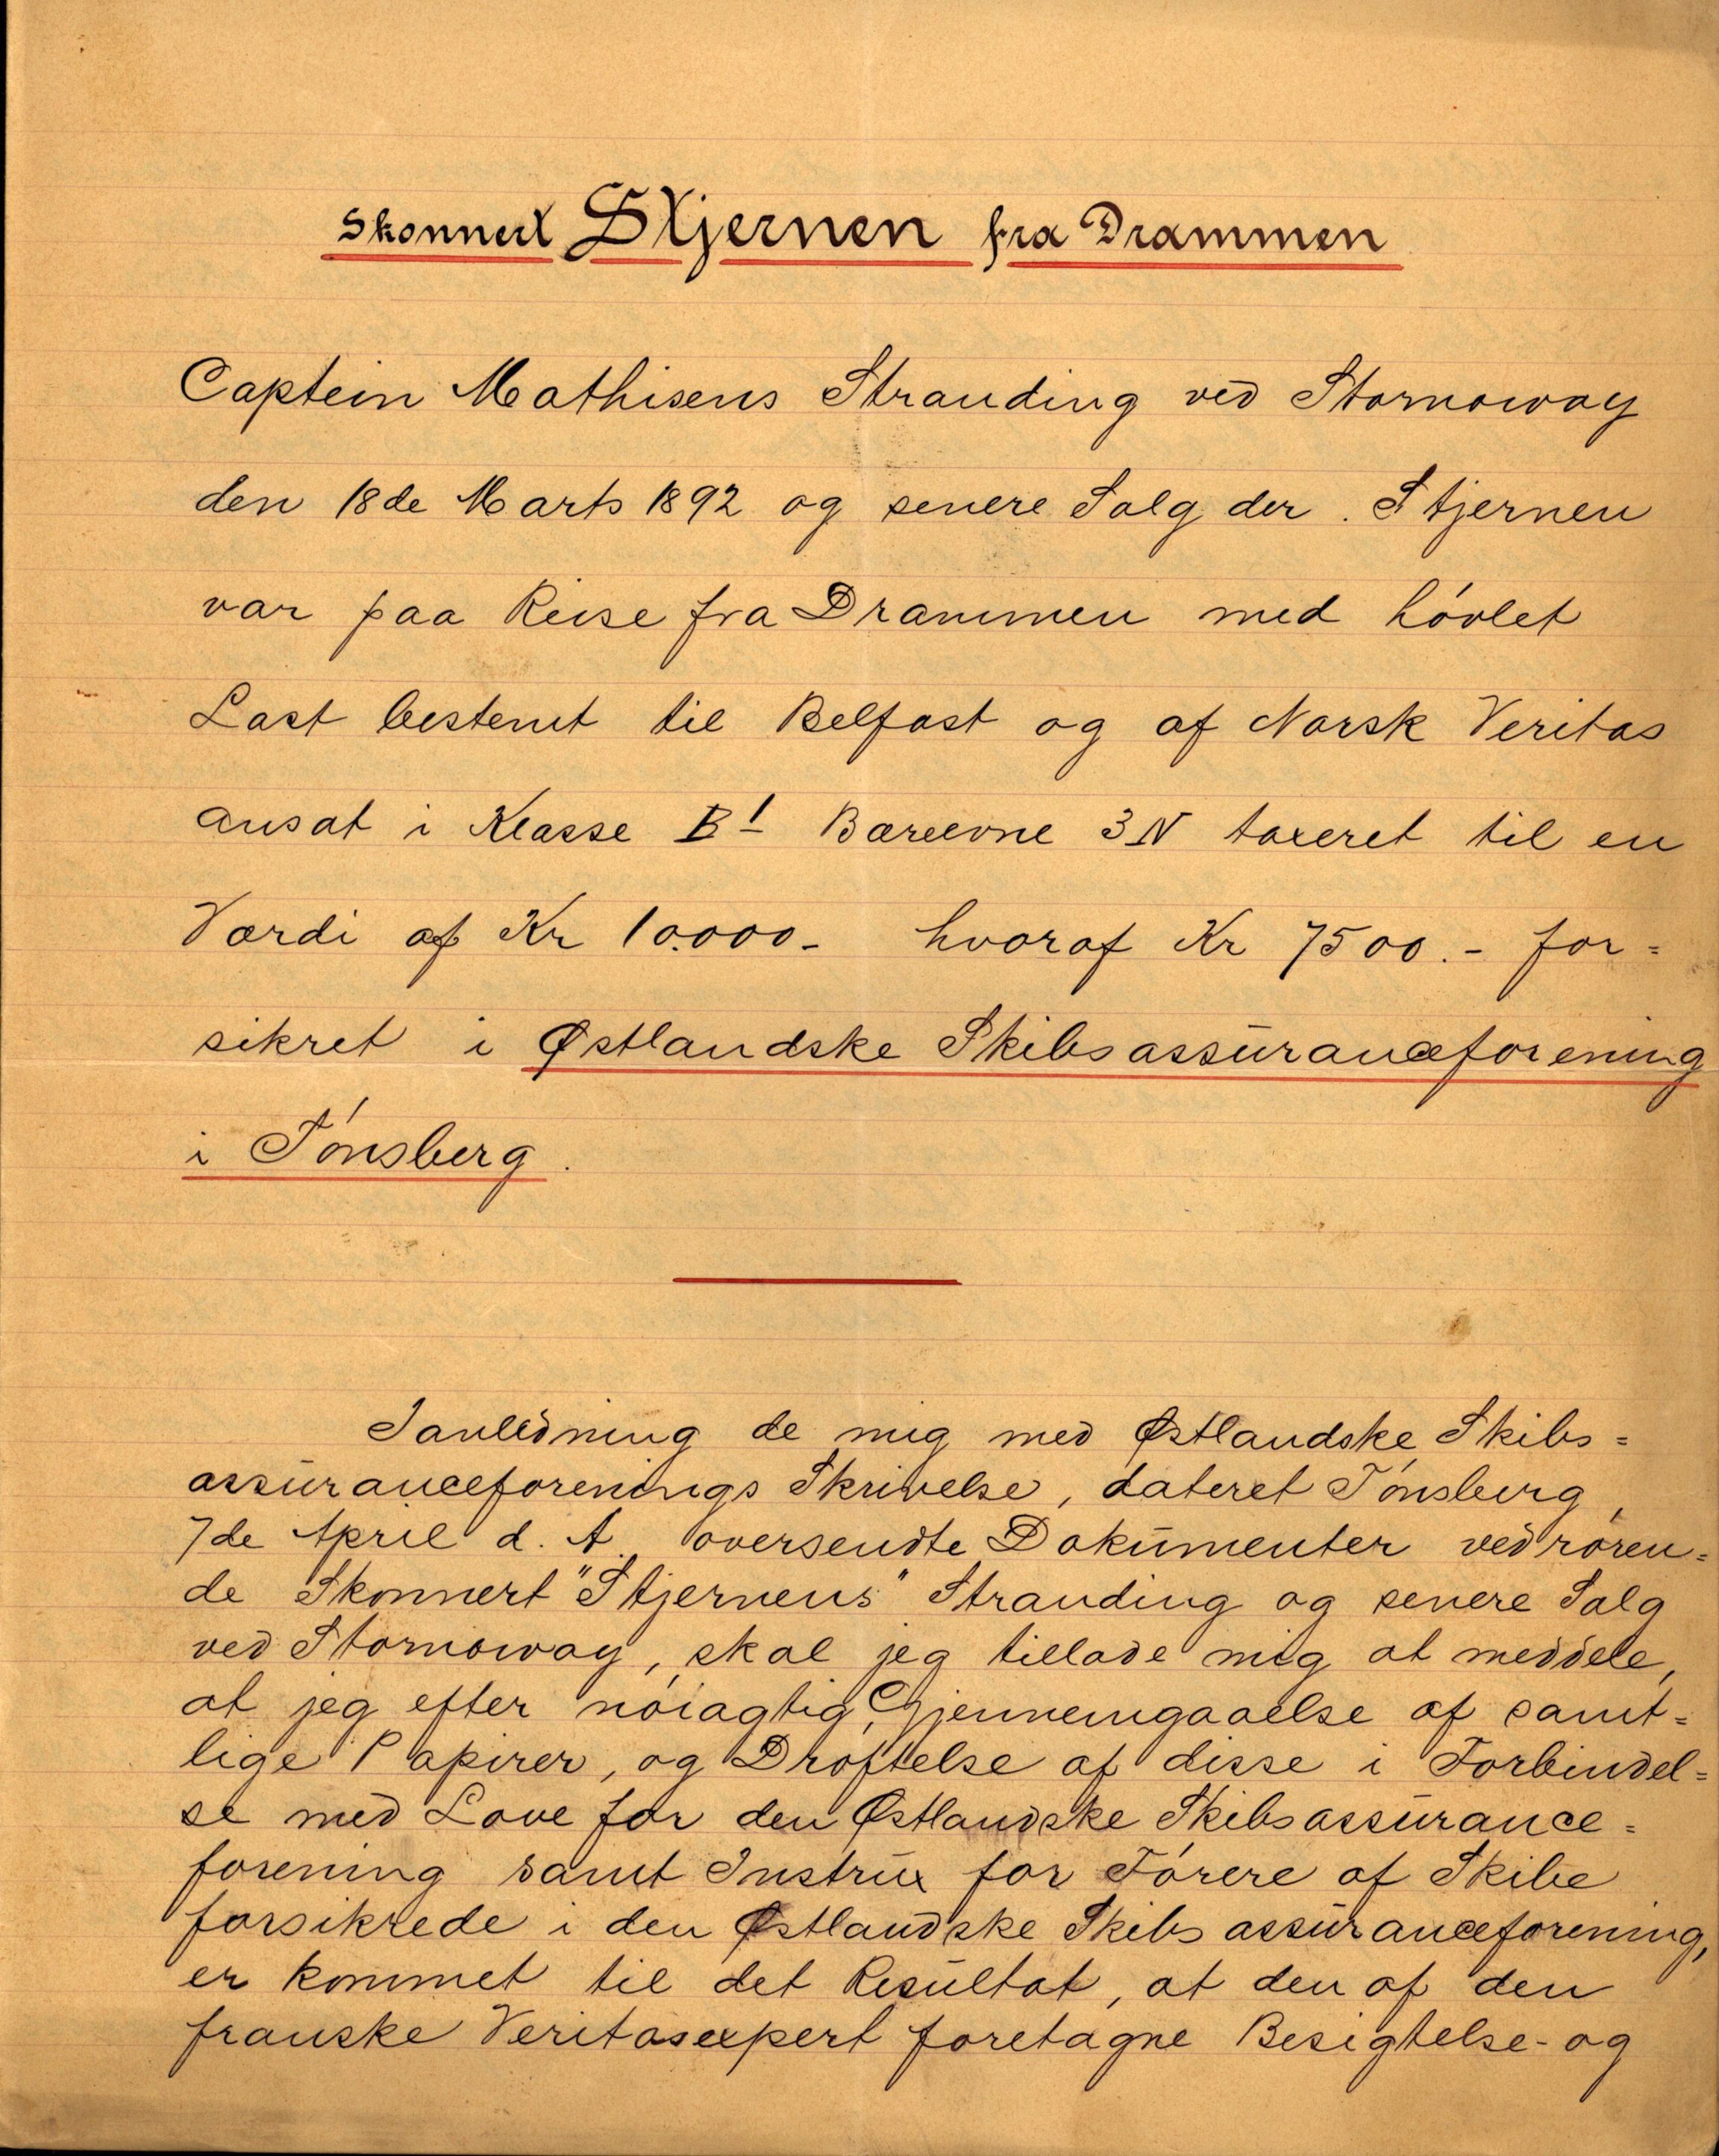 Skonnert Stjernen fra Drammen
Captein Mathisens Stranding ved Stornoway
den 18de Marts 1892 og senere Salg der. Stjernen
var paa Reise fra Drammen med høvlet
Last bestemt til Belfast og af Norsk Veritas
ansat i Klasse B1 Bæreevne 3 N taxeret til en
Værdi af Kr 10.000- hvoraf Kr 7500.- for=
sikret i Østlandske Skibsassuranceforening
i Tónsberg.
Ianledning de mig med Østlandske Skibs=
assuranceforenings Skrivelse, dateret Tónsberg,
7de April d. A. oversendte Dokumenter vedrören=
de Skonnert "Stjernens" Stranding og senere Salg
ved Stornoway, skal jeg tillade mig at meddele,
at jeg efter nóiagtig Gjennemgaaelse af samt=
lige Papirer, og Dróftelse af disse i Forbindel=
se med Love for den Østlandske Skibsassurance=
forening samt Instrux for Fórere af Skibe
forsikrede i den Østlandske Skibsassuranceforening,
er kommet til det Resultat, at den af den
franske Veritasexpert foretagne Besigtelse- og